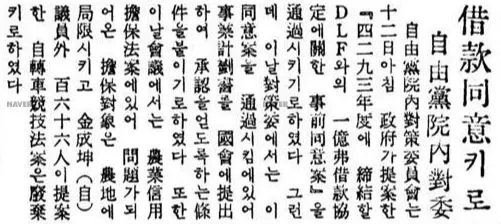 借款同意키로
自由黨院內對委
自由黨院內對策委員會는
十二日아침 政府가提案한
『四二九三年度에 締結할
DLF와의 一億弗借款協
定에關한 事前同意案』을
通過시키기로하였다 그런
데 이날對策委에서는 이
同意案을 通過시킴에있어
事業計劃書을 國會에提出
하여 承認을얻도록하는條
件을붙이기로하였다 또한
이날會議에서는 農業信用
擔保法案에있어 問題가되
어온 擔保對象은 農地에
局限시키고 金成坤(自)
議員外 百六十六人이提案
한 自轉車競技法案은廢棄
키로하였다
NAVER